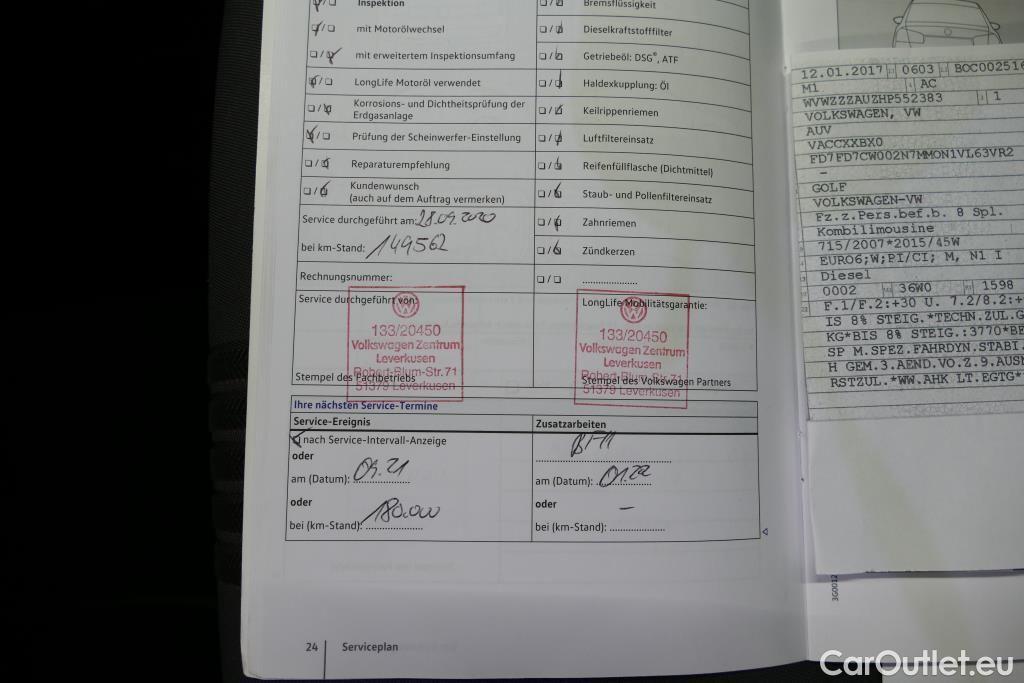 Inspektion
mit Motorölwechsel
mit erweitertem Inspektionsumfang
LongLife Motoröl verwendet
Korrosions- und Dichtheitsprüfung der
Erdgasanlage
Prüfung der Scheinwerfer-Einstellung
Reparaturempfehlung
Kundenwunsch
(auch auf dem Auftrag vermerken)
Service durchgeführt am: 28.09.2020
bei km-Stand: 149562
Rechnungsnummer:
Service durchgeführt von:
133/20450
Volkswagen Zentrum
Leverkusen
Robert-Blum-Str. 71
51379 Leverkusen
Stempel des Fachbetriebs
Bremsflüssigkeit
Dieselkraftstofffilter
Getriebeöl: DSG®, ATF
Haldexkupplung: Öl
Keilrippenriemen
Luftfiltereinsatz
Reifenfüllflasche (Dichtmittel)
Staub- und Pollenfiltereinsatz
Zahnriemen
Zündkerzen
LongLife Mobilitätsgarantie:
133/20450
Volkswagen Zentrum
Leverkusen
Robert-Blum-Str. 71
51379 Leverkusen
Stempel des Volkswagen Partners
Ihre nächsten Service-Termine
Service-Ereignis
nach Service-Intervall-Anzeige
oder
am (Datum): 09.21
oder
bei (km-Stand): 180.000
Zusatzarbeiten
am (Datum): 01.22
oder
bei (km-Stand): –
24 Serviceplan
12.01.2017 0603 BOC002516
M1 AC
WVWZZZAUZHP552383 1
VOLKSWAGEN, VW
AUV
VACCXXBX0
FD7FD7CW002N7MMON1VL63VR2
–
GOLF
VOLKSWAGEN-VW
Fz.z.Pers.bef.b. 8 Spl.
Kombilimousine
715/2007*2015/45W
EURO6;W;PI/CI; M, N1 I
Diesel
0002 36W0 1598
F.1/F.2:+30 U. 7.2/8.2:+
IS 8% STEIG.*TECHN.ZUL.G
KG*BIS 8% STEIG.:3770*BE
SP M.SPEZ.FAHRDYN.STABI.
H GEM.3.AEND.VO.Z.9.AUSN
RSTZUL.*WW.AHK LT.EGTG*
3G0012
CarOutlet.eu